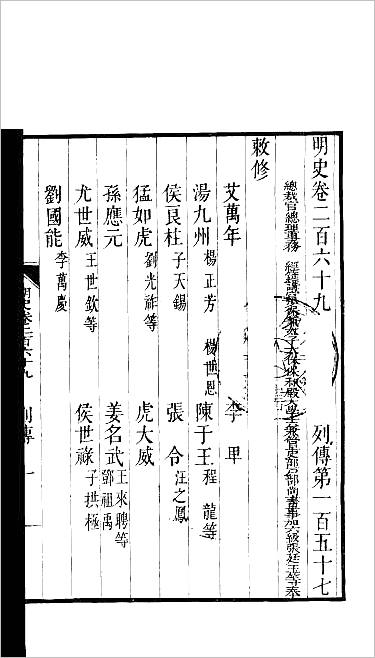 明史卷二百六十九　列傳第一百五十七
總裁官總理事務　經筵講官少保兼太子太保保和殿大學士兼管吏部戶部尚書事加六級張廷玉等奉
敕修
艾萬年　李甲
湯九州　楊正芳　楊世恩　陳于王　程龍等
侯良柱　子天錫　張令　汪之鳳
猛如虎　劉光祚等　虎大威
孫應元　姜名武　王來聘等　鄧祖禹
尤世威　王世欽等　侯世祿　子拱極
劉國能　李萬慶
明史卷二百六十九　列傳　一